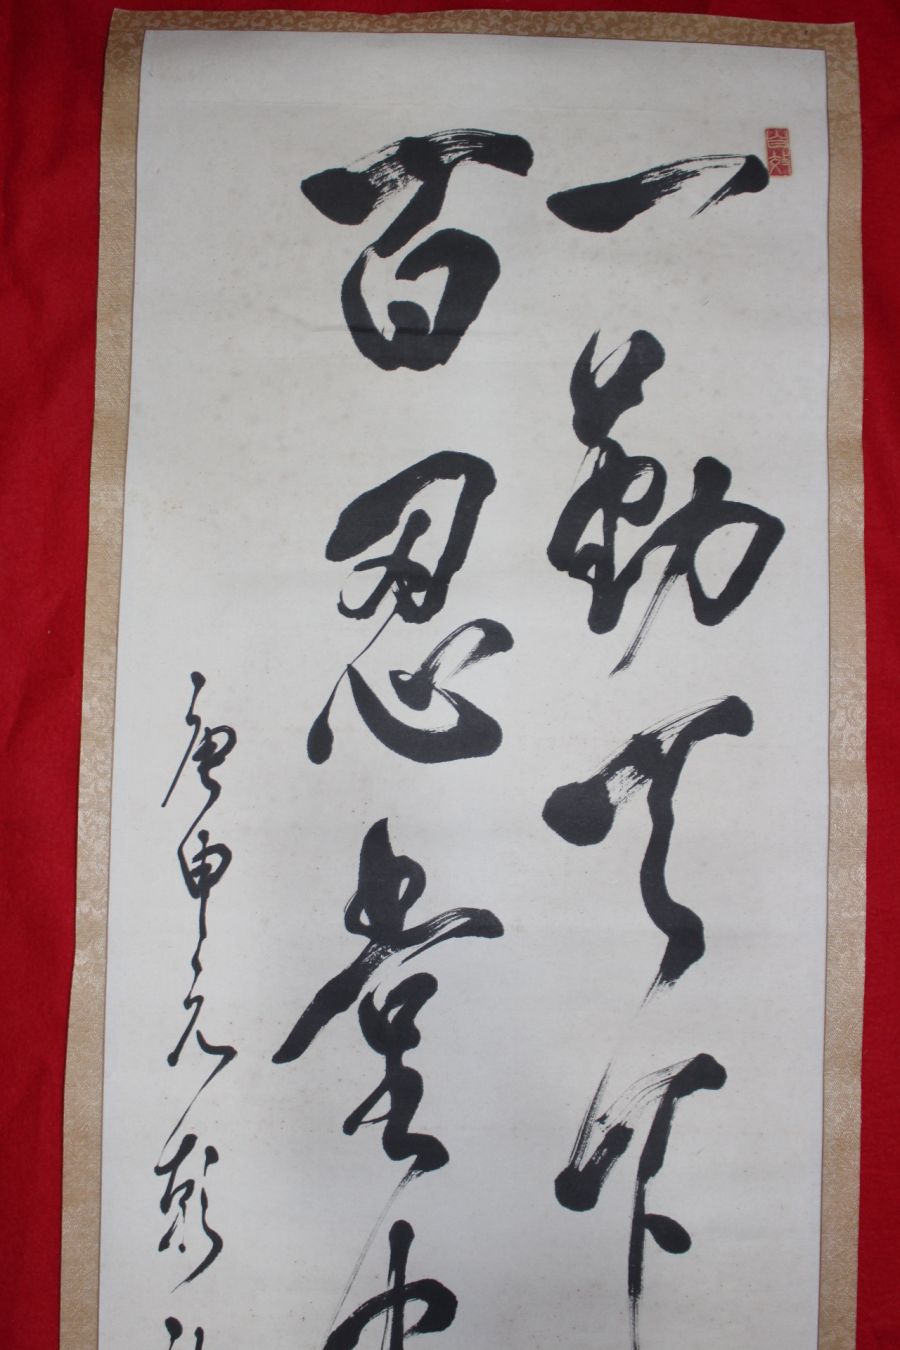 一勤天下
百忍堂中
庚申元